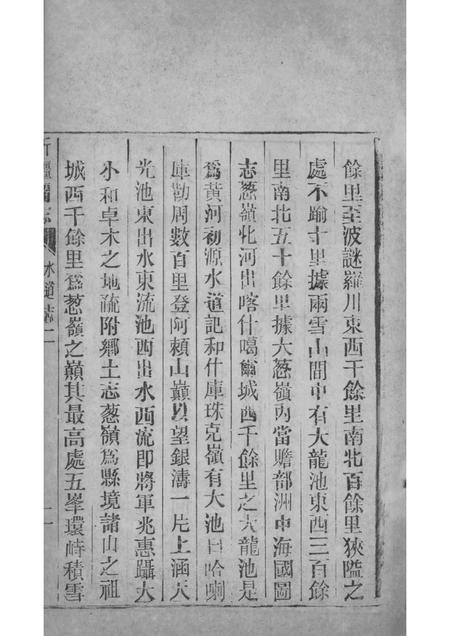 餘里至波謎羅川東西千餘里南北百餘里狹隘之
處不踰十里據兩雪山間中有大龍池東西三百餘
里南北五十餘里據大葱嶺內當贍部洲中海國圖
志葱嶺北河出喀什噶爾城西千餘里之大龍池是
爲黃河初源水道記和什庫珠克嶺有大池曰哈喇
庫勒周數百里登阿賴山巓以望銀濤一片上涵天
光池東出水東流池西出水西流卽將軍兆惠躡大
小和卓木之地疏附鄉土志葱嶺爲縣境諸山之祖
城西千餘里爲葱嶺之巓其最高處五峯環峙積雪
新疆圖志 水道志二